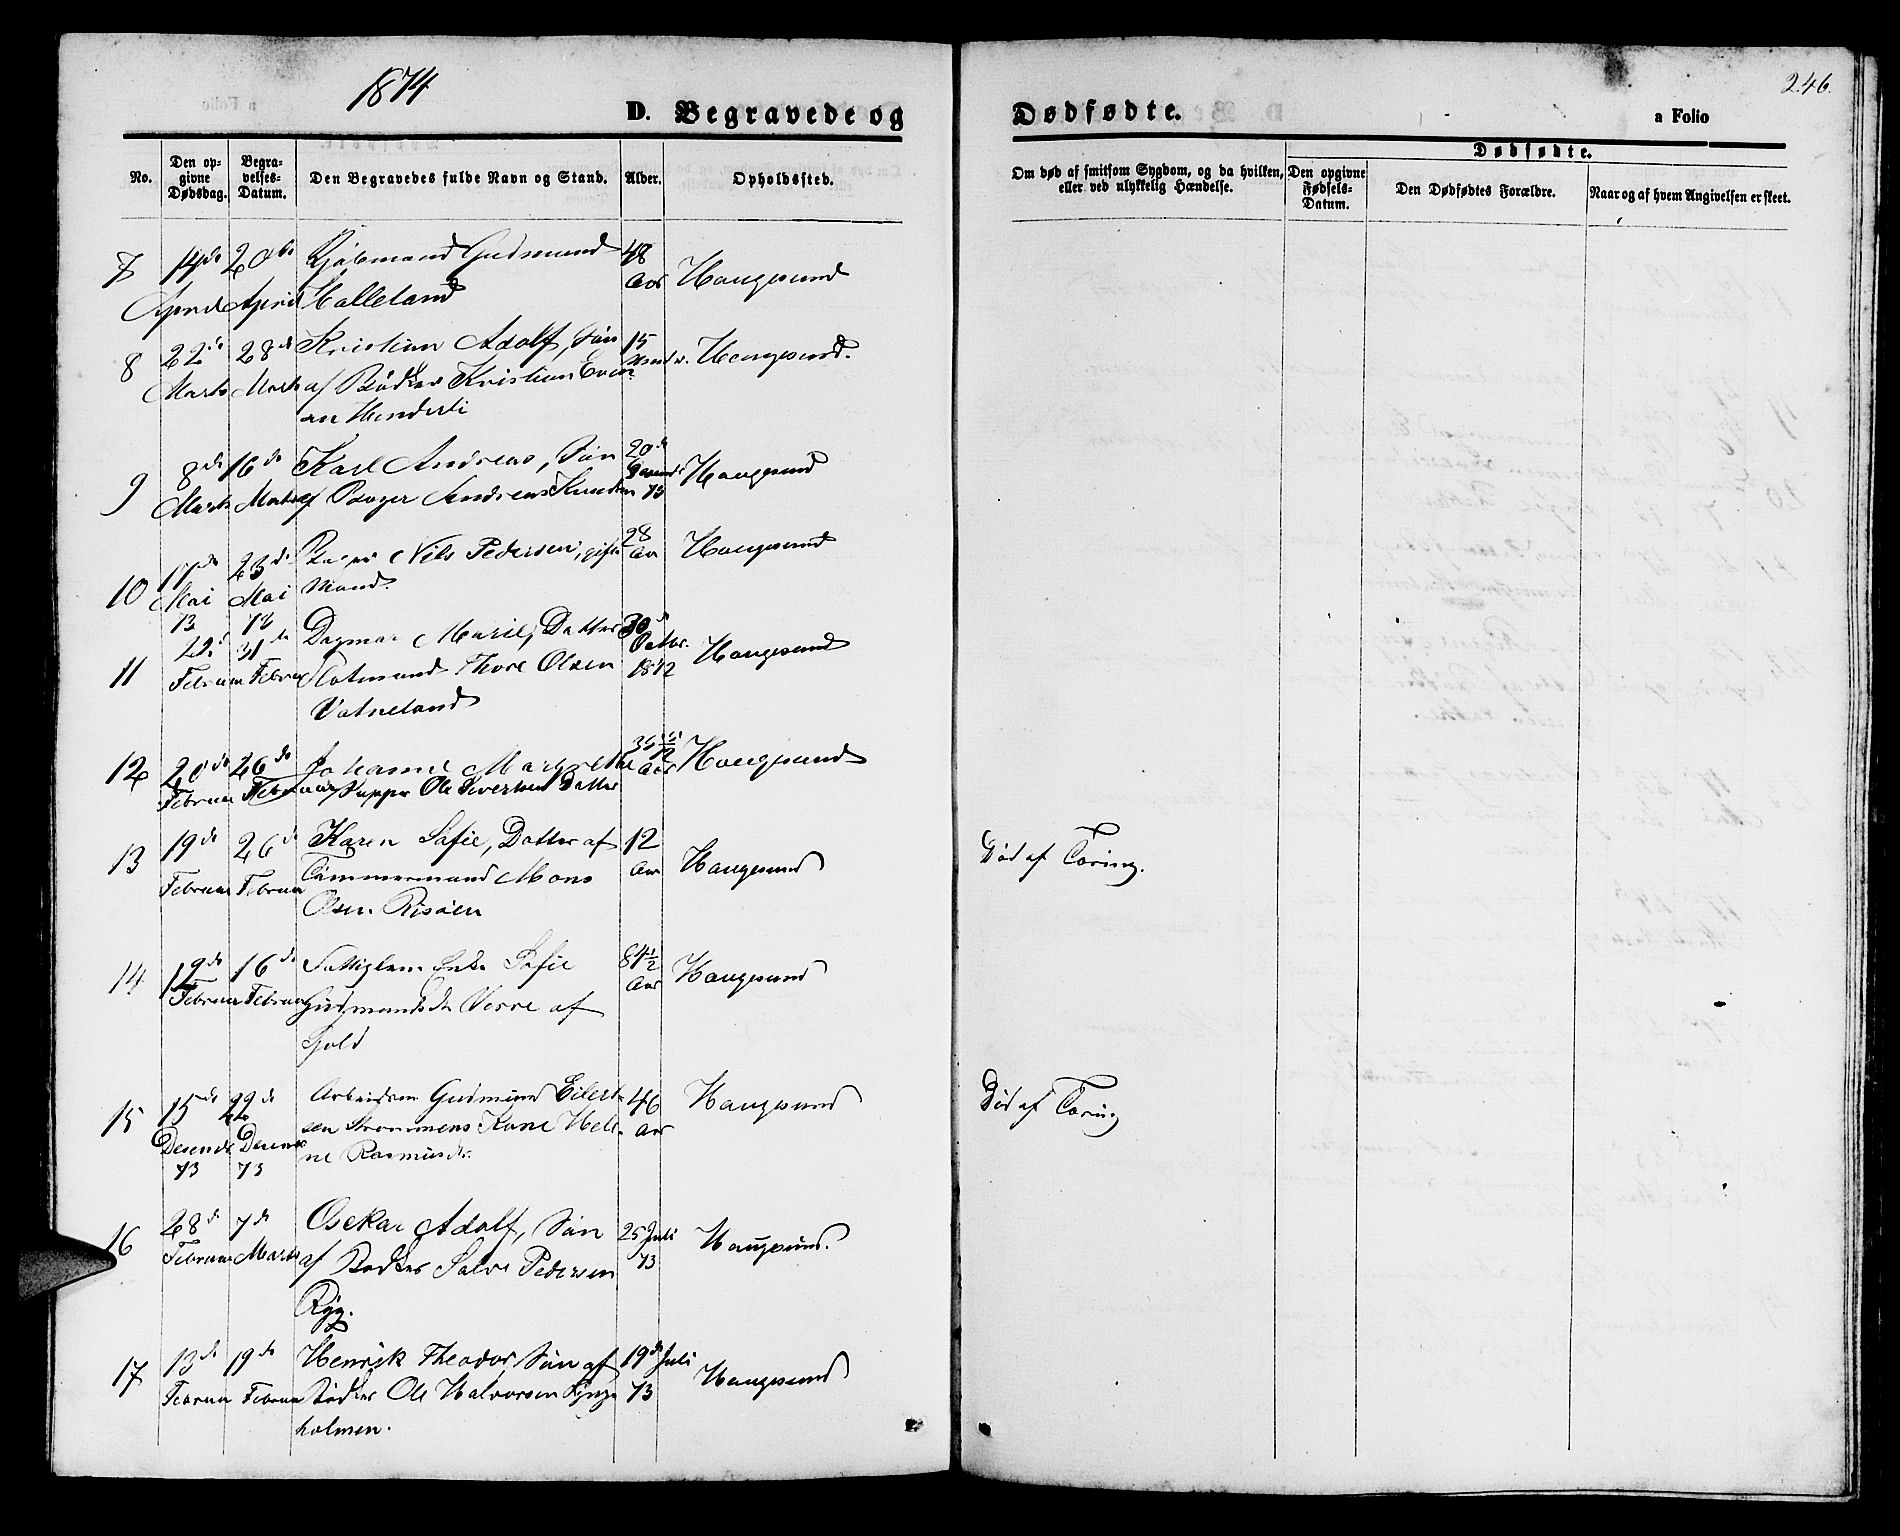 1874
D. Begravede og
Dødfødte.
246.
a Folio
No.
Den opgivne Dødsdag.
Begravelses-Datum.
Den Begravedes fulde Navn og Stand.
Alder.
Opholdssted.
Om død af smitsom Sygdom, og da hvilken, eller ved ulykkelig Hændelse.
Dødfødte.
Den opgivne Fødsels-Datum.
Den Dødfødtes Forældre.
Naar og af hvem Angivelsen er skeet.
7 14de 20de Kjøbmand Gudmund 48
April April Halleland Aar Haugesund
8 22de 28de Kristian Adolf, Søn 15
Marts Marts af Bødker Kristian Haugesund.
9 8de 16de Karl Andreas, Søn 20de
Marts Marts af Andreas Knudsen 73 Haugesund
10 17de 23de Nils Pedersen, gift 28 Aar Haugesund
Mai Mai Mand.
73 73
11 22de 31te Dagmar Marie, Datter 30
Februar Februar Thore Olsen Oktbr. 1872 Haugesund
Vatneland
12 20de 26de Johanne Aar Haugesund
Februar Februar Ole Datter
13 19de 26de Karen Sofie, Datter af 12
Februar Februar Tømmermand Mons Aar Haugesund Død af Tæring.
Olsen Risøen
14 12de 16de Fattiglem Enke Sofie 84 1/2
Februar Februar Aar Haugesund
af
15 15de 22de Arbeidsm Gudmund Eilert- 46 Haugesund Død af Tæring
sen Strømmens Kone Hele- Aar
ne Rasmusdtr.
73 73
16 28de 7de Oskar Adolf, Søn 25 Juli
Februar Marts af Bødker Salve Pedersen 73 Haugesund.
Ryg.
17 13de 19de Henrik Theodor, Søn af 19de Juli
Februar Februar Bødker Ole Halvorsen 73 Haugesund
holmen.